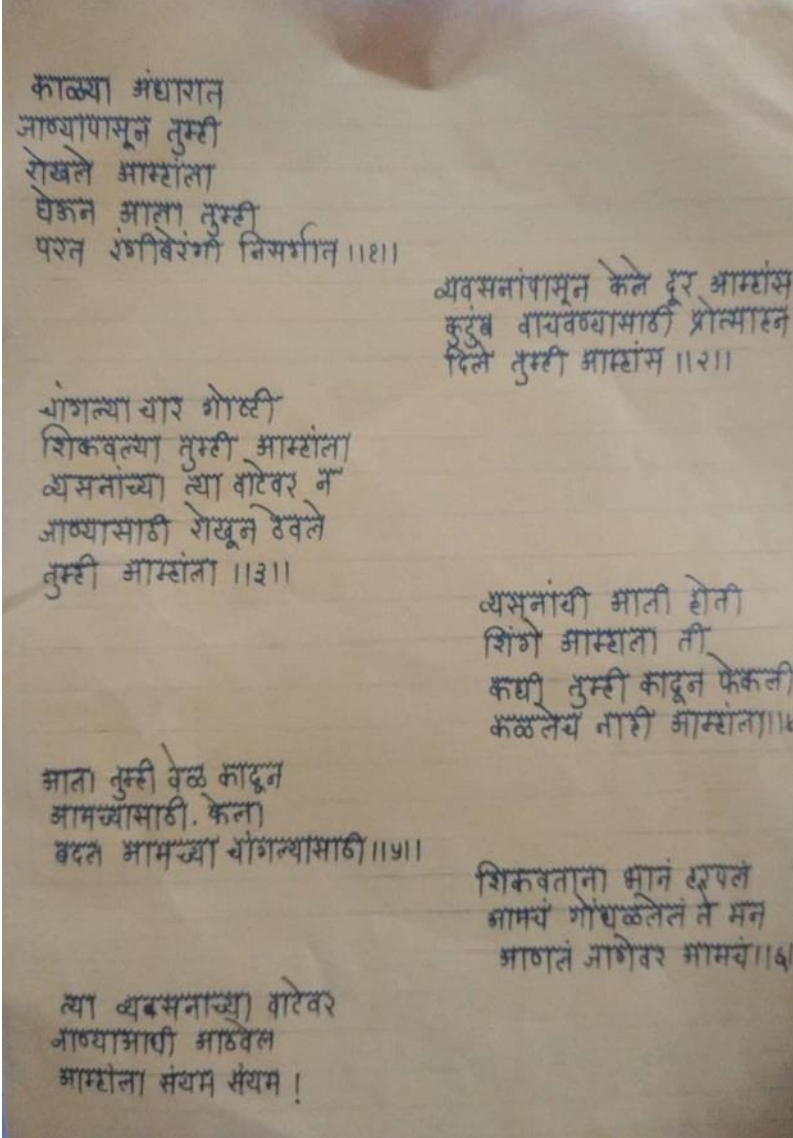 काळ्या अंधारात
जाण्यापासून तुम्ही
रोखले आम्हांला
घेऊन आला तुम्ही
परत रंगीबेरंगी निसर्गात ॥१॥
व्यवसनांपासून केले दूर आम्हांस
कुटुंब वाचवण्यासाठी प्रोत्साहन
दिले तुम्ही आम्हांस ॥२॥
चांगल्या चार गोष्टी
शिकवल्या तुम्ही आम्हांला
व्यसनांच्या त्या वाटेवर न
जाण्यासाठी रोखून ठेवले
तुम्ही आम्हांला ॥३॥
व्यसनांची आली होती
शिंगे आम्हाला ती
कधी तुम्ही काढून फेकली
कळलेच नाही आम्हांला॥४
आता तुम्ही वेळ काढून
आमच्यासाठी. केला
बदल आमच्या चांगल्यासाठी॥५॥
शिकवताना भानं हरपलं
आमचं गोंधळलेलं ते मन
आणलं जागेवर आमचं॥६॥
त्या व्यवसनाच्या वाटेवर
जाण्याआधी आठवेल
आम्हांला संयम संयम !